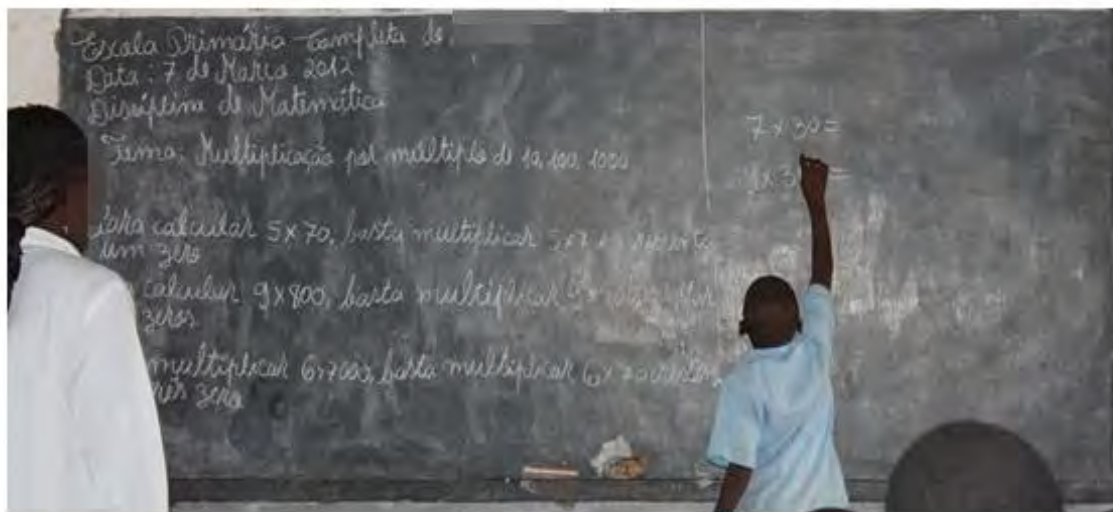 Escola Primária Completa de
Data: 7 de Março 2012
Disciplina de Matemática
Tema: Multiplicação por múltiplo de 10, 100, 1000
Para calcular 5x70, basta multiplicar 5x7 e acrescenta
um zero
calcular 9x800, basta multiplicar
zeros
multiplicar 6x7000, basta multiplicar 6x7 acrescenta
três zero
7x30=